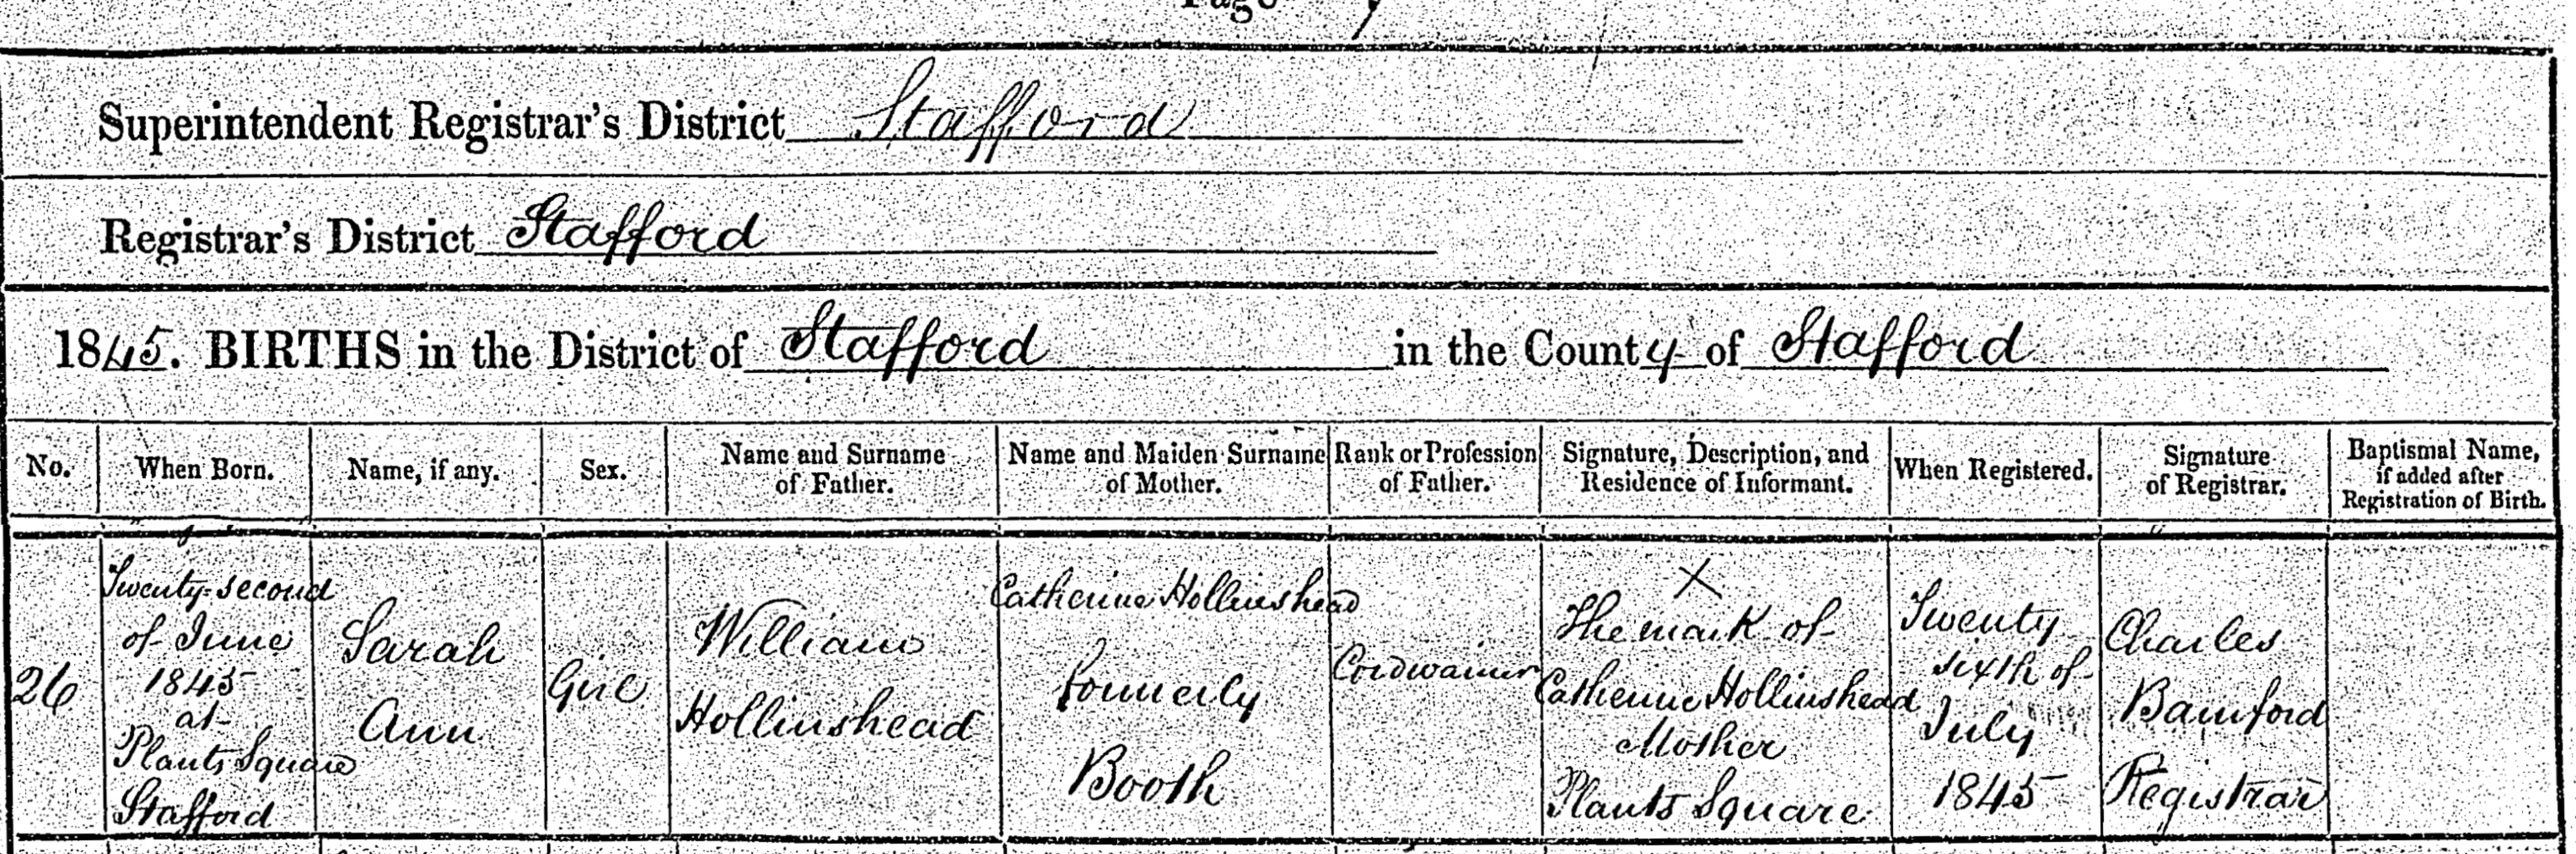 Page 7
Superintendent Registrar's District Stafford
Registrar's District Stafford
1845. BIRTHS in the District of Stafford in the County of Stafford
No.
When Born.
Name, if any.
Sex.
Name and Surname
of Father.
Name and Maiden Surname
of Mother.
Rank or Profession
of Father.
Signature, Description, and
Residence of Informant.
When Registered.
Signature
of Registrar.
Baptismal Name,
if added after
Registration of Birth.
26
Twenty-second
of June
1845
at
Plants Square
Stafford
Sarah
Ann
Girl
William
Hollinshead
Catherine Hollinshead
formerly
Booth
Cordwainer
X
The mark of
Catherine Hollinshead
Mother
Plants Square
Twenty
sixth of
July
1845
Charles
Bamford
Registrar